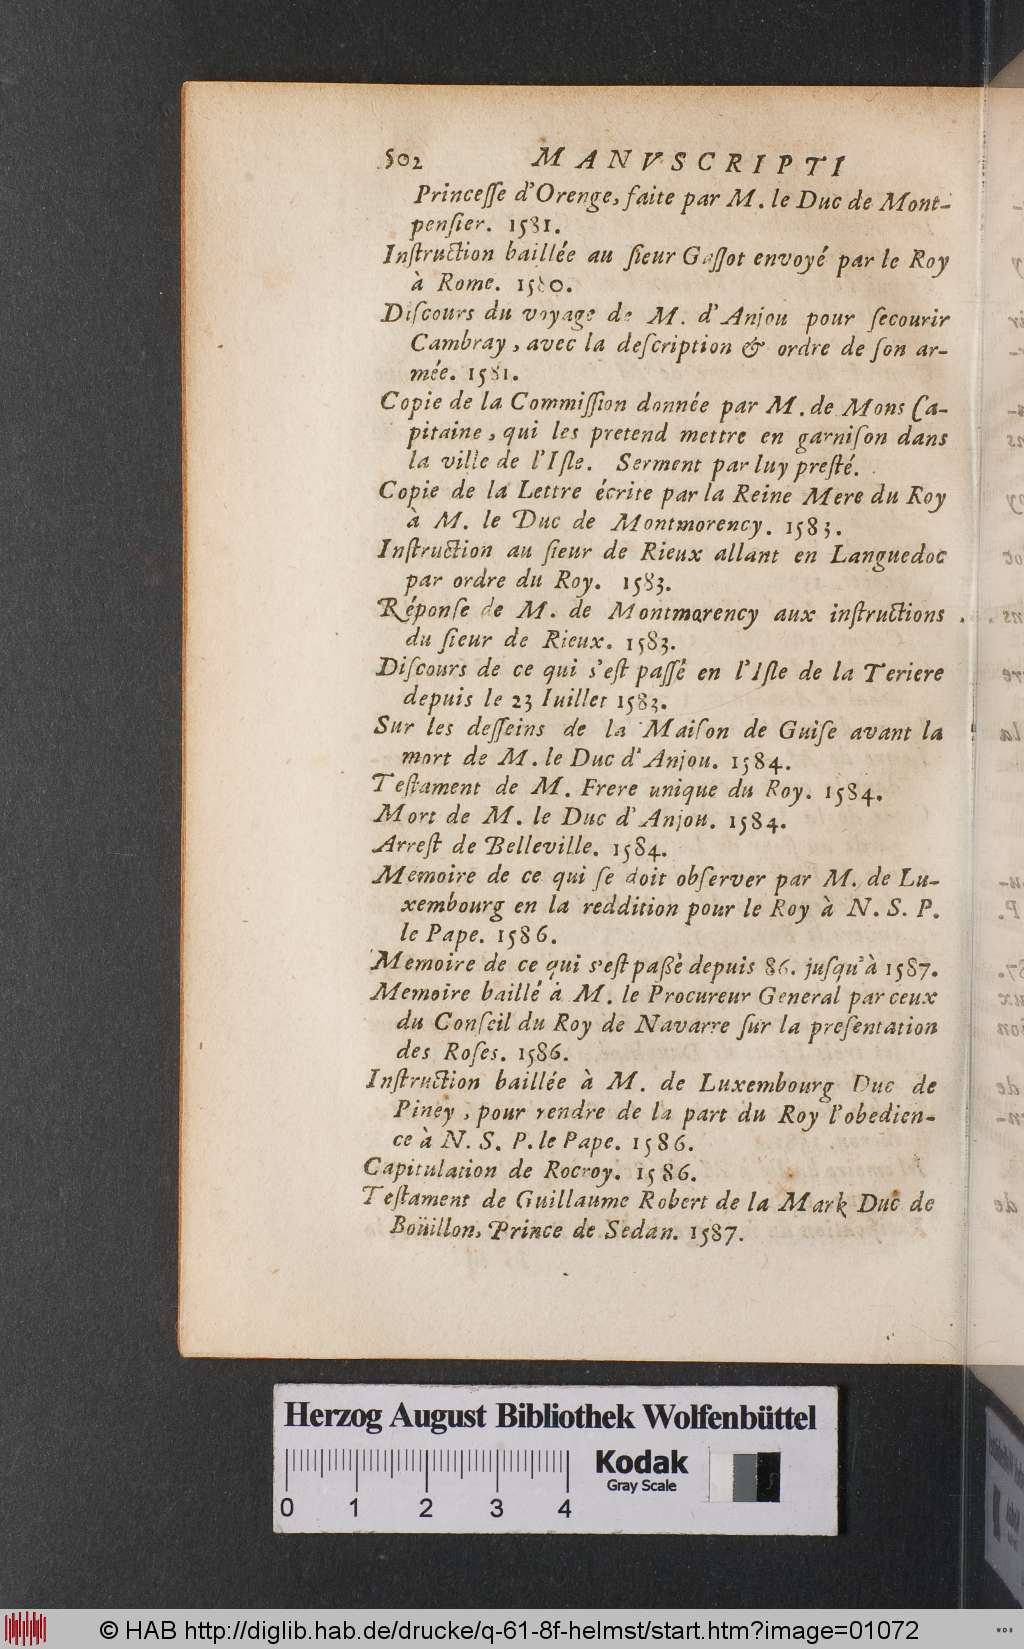 502 MANVSCRIPTI
Princesſe d'Orenge, faite par M. le Duc de Mont-
penſier. 1581.
Inſtruction baillée au ſieur Gaſſot envoyé par le Roy
à Rome. 1580.
Diſcours du voyage de M. d'Anjou pour ſecourir
Cambray, avec la deſcription & ordre de ſon ar-
mée. 1581.
Copie de la Commiſſion donnée par M. de Mons Ca-
pitaine, qui les pretend mettre en garniſon dans
la ville de l'Iſle. Serment par luy preſté.
Copie de la Lettre écrite par la Reine Mere du Roy
à M. le Duc de Montmorency. 1583.
Inſtruction au ſieur de Rieux allant en Languedoc
par ordre du Roy. 1583.
Réponſe de M. de Montmorency aux inſtructions
du ſieur de Rieux. 1583.
Diſcours de ce qui s'eſt paſſé en l'Iſle de la Teriere
depuis le 23 Iuillet 1583.
Sur les deſſeins de la Maiſon de Guiſe avant la
mort de M. le Duc d'Anjou. 1584.
Teſtament de M. Frere unique du Roy. 1584.
Mort de M. le Duc d'Anjou. 1584.
Arreſt de Belleville. 1584.
Memoire de ce qui ſe doit obſerver par M. de Lu-
xembourg en la reddition pour le Roy à N. S. P.
le Pape. 1586.
Memoire de ce qui s'eſt paßè depuis 86. juſqu'à 1587.
Memoire baillé à M. le Procureur General par ceux
du Conſeil du Roy de Navarre ſur la preſentation
des Roſes. 1586.
Inſtruction baillée à M. de Luxembourg Duc de
Piney, pour rendre de la part du Roy l'obedien-
ce à N. S. P. le Pape. 1586.
Capitulation de Rocroy. 1586.
Teſtament de Guillaume Robert de la Mark Duc de
Boüillon, Prince de Sedan. 1587.
Herzog August Bibliothek Wolfenbüttel
Kodak
Gray Scale
0 1 2 3 4
© HAB http://diglib.hab.de/drucke/q-61-8f-helmst/start.htm?image=01072